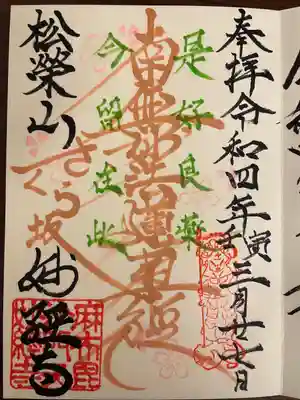 奉拝 令和四年 壬寅 三月廿七日
是好良薬
南無妙法蓮華経
今留在此
さくら坂
松榮山 妙經寺